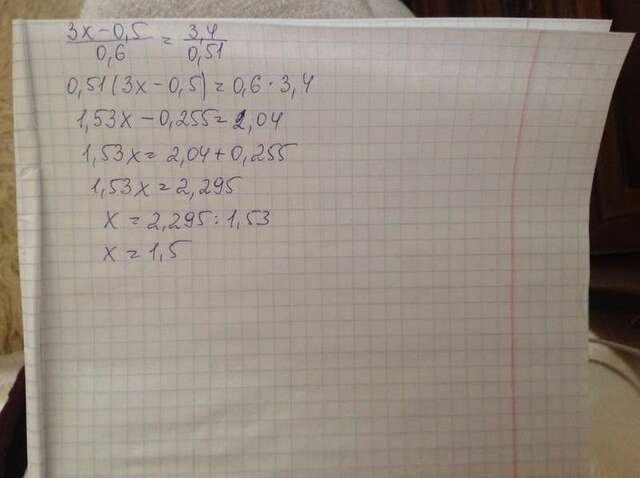 3x-0,5/0,6 = 3,4/0,51
0,51(3x-0,5)=0,6·3,4
1,53x-0,255=2,04
1,53x=2,04+0,255
1,53x=2,295
x=2,295:1,53
x=1,5